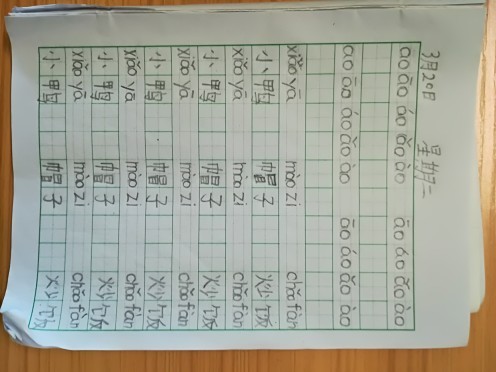 3月20日 星期二
ao āo áo ǎo ào āo áo ǎo ào
ao āo áo ǎo ào āo áo ǎo ào
xiǎo yā mào zi chǎo fàn
小鸭 帽子 炒饭
xiǎo yā mào zi chǎo fàn
小鸭 帽子 炒饭
xiǎo yā mào zi chǎo fàn
小鸭 帽子 炒饭
xiǎo yā mào zi chǎo fàn
小鸭 帽子 炒饭
xiǎo yā mào zi chǎo fàn
小鸭 帽子 炒饭